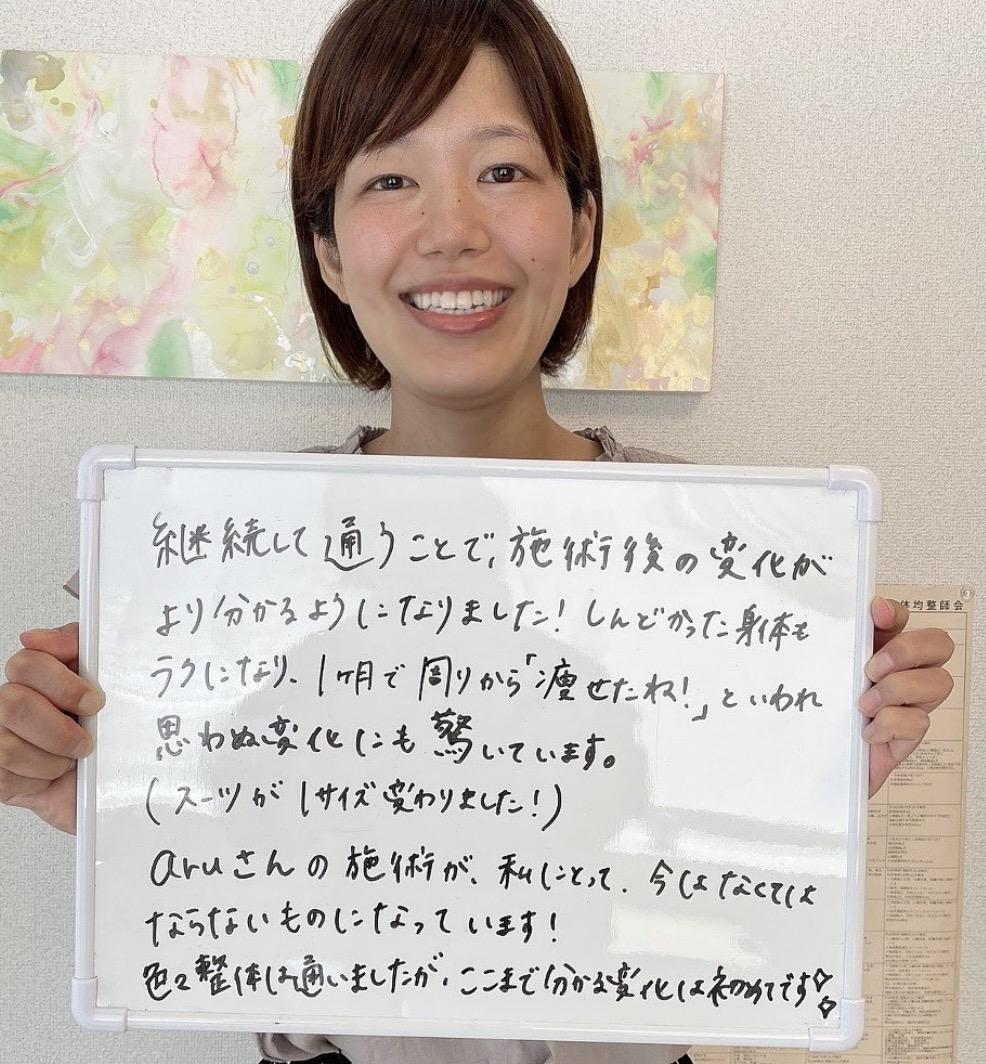 継続して通うことで、施術後の変化が
より分かるようになりました！しんどかった身体も
ラクになり、1ヶ月で周りから「痩せたね！」といわれ
思わぬ変化にも驚いています。
（スーツが1サイズ変わりました！）
aruさんの施術が、私にとって、今はなくては
ならないものになっています！
色々整体は通いましたが、ここまで分かる変化は初めてです
体均整師会